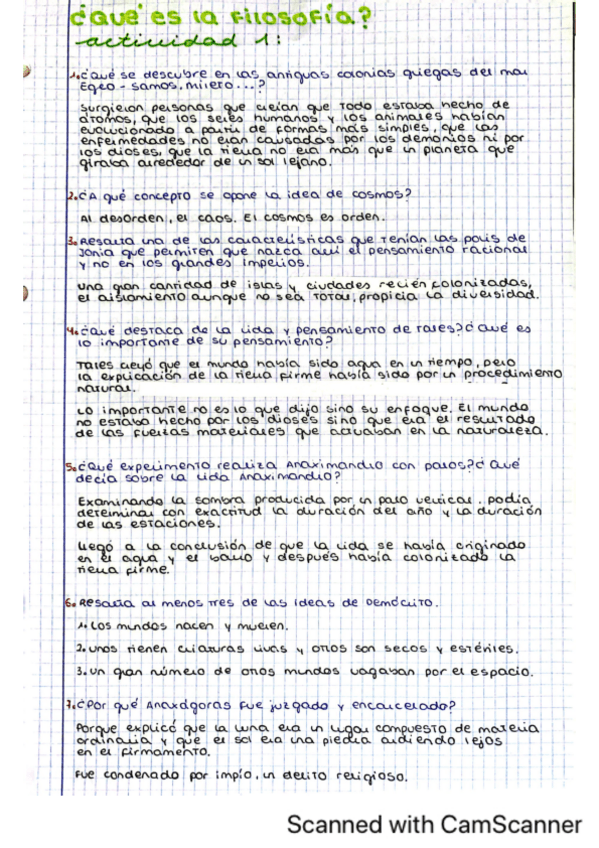 ¿Qué es la Filosofía?
actividad 1:
1.¿Qué se descubre en las antiguas colonias griegas del mar
Egeo - samos, mileto...?
Surgieron personas que creían que todo estaba hecho de
átomos, que los seres humanos y los animales habían
evolucionado a partir de formas más simples, que las
enfermedades no eran causadas por los demonios ni por
los dioses, que la tierra no era más que un planeta que
giraba alrededor de un sol lejano.
2.¿A qué concepto se opone la idea de cosmos?
Al desorden, el caos. El cosmos es orden.
3.Resalta una de las características que tenían las polis de
Jonia que permiten que nazca aquí el pensamiento racional
y no en los grandes imperios.
Una gran cantidad de islas y ciudades recién colonizadas,
el aislamiento aunque no sea total, propicia la diversidad.
4.¿Qué destaca de la vida y pensamiento de tales?¿Qué es
lo importante de su pensamiento?
Tales creyó que el mundo había sido agua en un tiempo, pero
la explicación de la tierra firme había sido por un procedimiento
natural.
Lo importante no es lo que dijo sino su enfoque. El mundo
no estaba hecho por los dioses sino que era el resultado
de las fuerzas materiales que actuaban en la naturaleza.
5.¿Qué experimento realiza Anaximandro con palos?¿Qué
decía sobre la vida Anaximandro?
Examinando la sombra producida por un palo vertical. podía
determinar con exactitud la duración del año y la duración
de las estaciones.
Llegó a la conclusión de que la vida se había originado
en el agua y el barro y después había colonizado la
tierra firme.
6.Resalta al menos tres de las ideas de Demócrito.
1.Los mundos nacen y mueren.
2.unos tienen criaturas vivas y otros son secos y estériles.
3.un gran número de otros mundos vagaban por el espacio.
7.¿Por qué Anaxágoras fue juzgado y encarcelado?
Porque explicó que la luna era un lugar compuesto de materia
ordinaria y que el sol era una piedra ardiendo lejos
en el firmamento.
Fue condenado por impío, un delito religioso.
Scanned with CamScanner